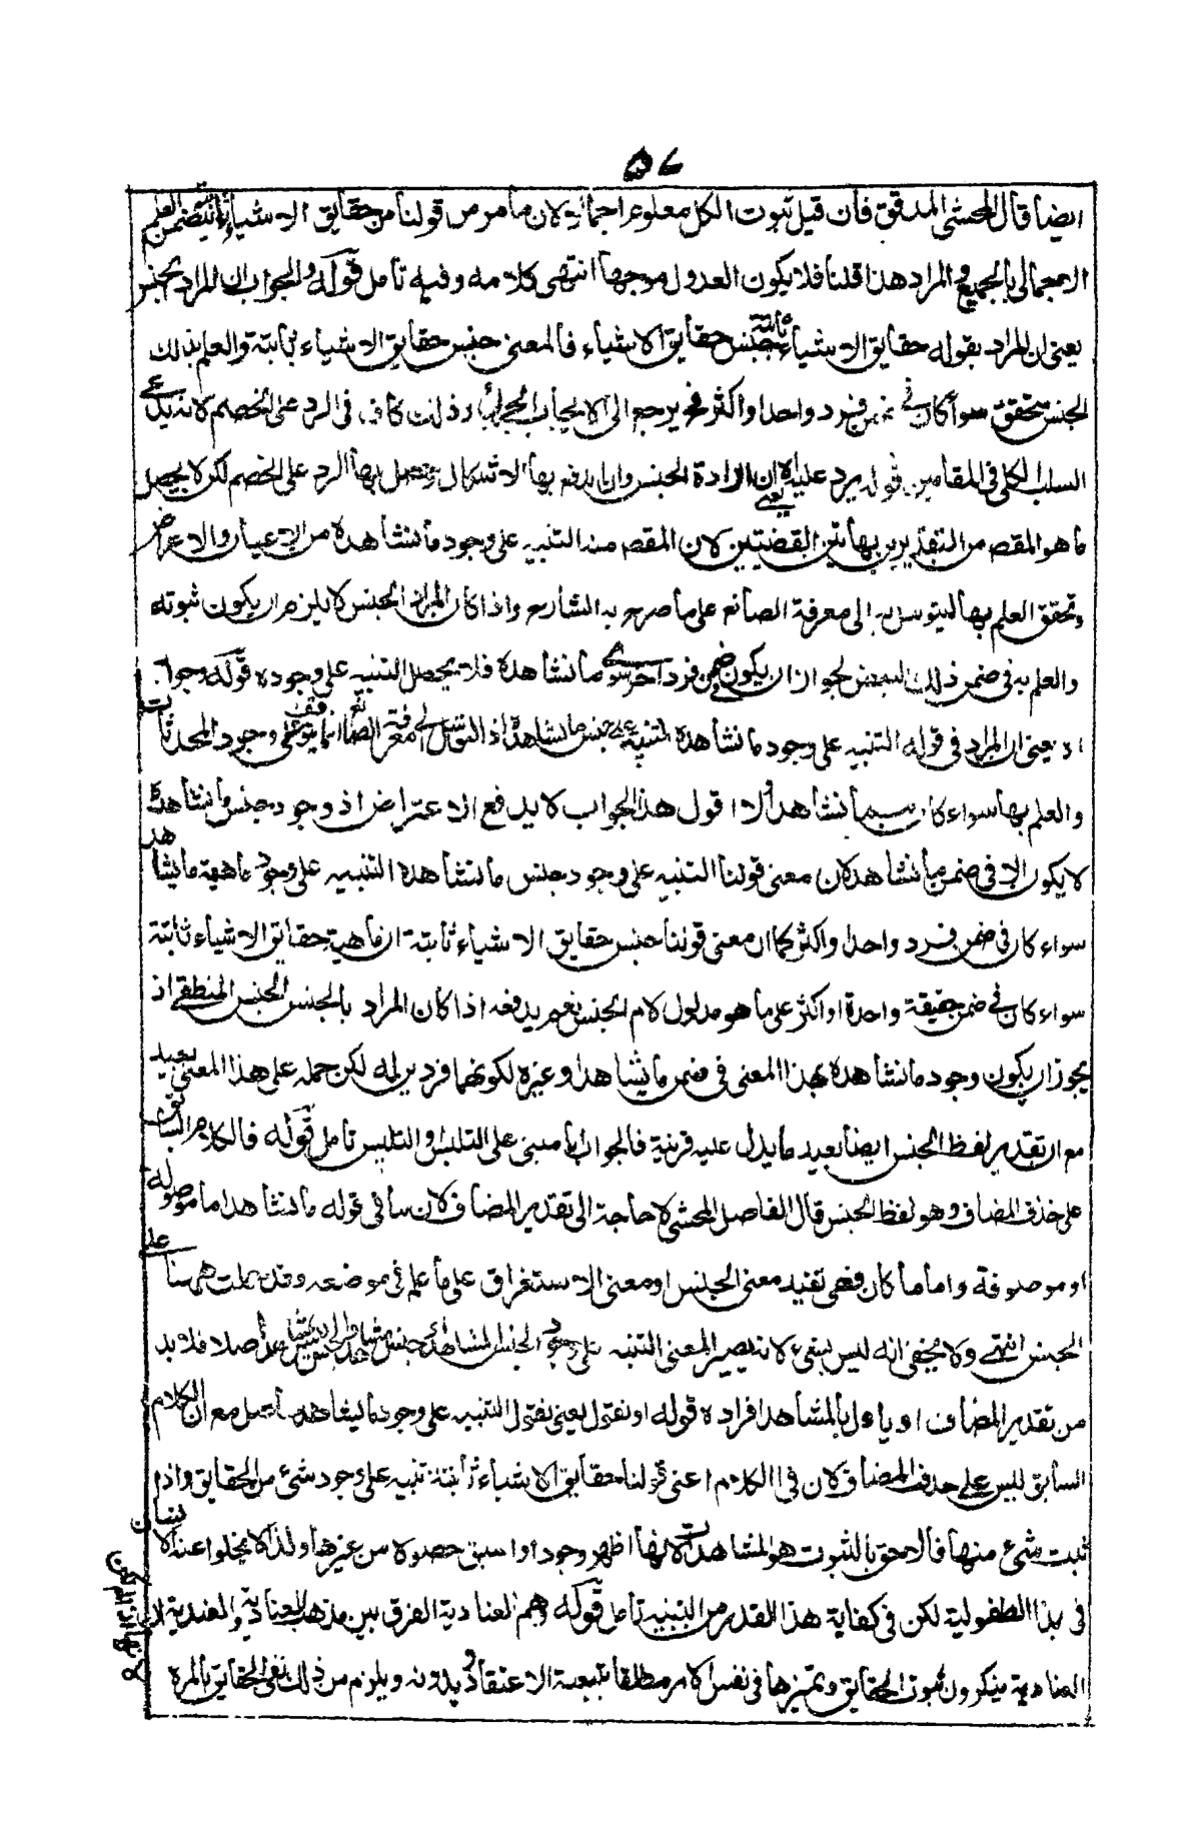 ٥٧
ايضا قال المحشى المدقق فان قيل ثبوت الكل معلوم اجمالا لان ما مر من قولنا من حقايق الاشياء ثابتة يتضمن العلم
الاجمالى بالجميع والمراد هذا قلنا فلا يكون العدول موجها انتهى كلامه وفيه تامل قوله والجواب ان المراد الجنس
يعنى ان المراد بقوله حقايق الاشياء ثابتة جنس حقايق الاشياء فالمعنى جنس حقايق الاشياء ثابتة والعلم بذلك
الجنس متحقق سواء كان فى ضمن فرد واحد او اكثر فيرجع الى الايجاب الجزئى وذلك كاف فى الرد على الخصم لانه يدعى
السلب الكلى فى المقامين قوله يرد عليه ان يعنى ان ارادة الجنس وان اندفع بها الاشكال وحصل بها الرد على الخصم لكن لا يحصل
ما هو المقصم من التقدير بهاتين القضيتين لان المقصم منه التنبيه على وجود ما نشاهده من الاعيان والاعراض
وتحقق العلم بها ليتوسل به الى معرفة الصانع على ما صرح به الشارح واذا كان المراد الجنس لا يلزم ان يكون ثبوته
والعلم به فى ضمن ذلك البعض لجواز ان يكون فى ضمن فرد اخر سوى ما نشاهده فلا يحصل التنبيه على وجوده قوله وجوابه
اه يعنى ان المراد فى قوله التنبيه على وجود ما نشاهده التنبيه على جنس ما نشاهده اذ التوسل الى معرفة الصانع انما يتوقف على وجود المحدثات
والعلم بها سواء كان مما نشاهد او لا اقول هذا الجواب لا يدفع الاعتراض اذ وجود جنس ما نشاهده
لا يكون الا فى ضمن ما نشاهد لان معنى قولنا التنبيه على وجود جنس ما نشاهده التنبيه على وجود ماهية ما يشاهد
سواء كان فى ضمن فرد واحد او اكثر كما ان معنى قولنا جنس حقايق الاشياء ثابتة ان ماهية حقايق الاشياء ثابتة
سواء كان فى ضمن حقيقة واحدة او اكثر على ما هو مدلول لام الجنس نعم يدفعه اذا كان المراد بالجنس الجنس المنطقى اذ
يجوز ان يكون وجود ما نشاهده بهذا المعنى فى ضمن ما يشاهد او غيره لكونهما فردين له لكن حمله على هذا المعنى بعيد
مع ان تقدير لفظ الجنس ايضا بعيد ما يدل عليه قرينة فالجواب مبنى على التلبس والتلبيس تامل قوله فالكلام السابق
على حذف المضاف وهو لفظ الجنس قال الفاضل المحشى لا حاجة الى تقدير المضاف لان ما فى قوله ما نشاهد اما موصولة
او موصوفة واما ما كان فهى تفيد معنى الجنس او معنى الاستغراق على ما علم فى موضعه وقد حملت ههنا على
الجنس انتهى ولا يخفى انه ليس بشئ لانه يصير المعنى التنبيه على وجود الجنس المشاهد اصلا فلا بد
من تقدير المضاف او ياول بالمشاهد افراده قوله او نقول يعنى نقول التنبيه على وجود ما يشاهد حاصل مع ان الكلام
السابق ليس على حذف المضاف لان فى الكلام اعنى قولنا حقايق الاشياء ثابتة تنبيه على وجود شئ من الحقايق واذا
ثبت شئ منها فالاحق بالثبوت هو المشاهدات لانها اظهر وجودا واسبق حصولا من غيرها ولذا لا يخلوا عنه الانسان
فى بدا الطفولية لكن فى كفاية هذا القدر من التنبيه تامل قوله وهم العنادية الفرق بين مذهب العنادية والعندية ان
العنادية ينكرون ثبوت الحقايق وتميزها فى نفس الامر مطلقا بتبعية الاعتقاد وبدونه ويلزم من ذلك نفى الحقايق بالمرة